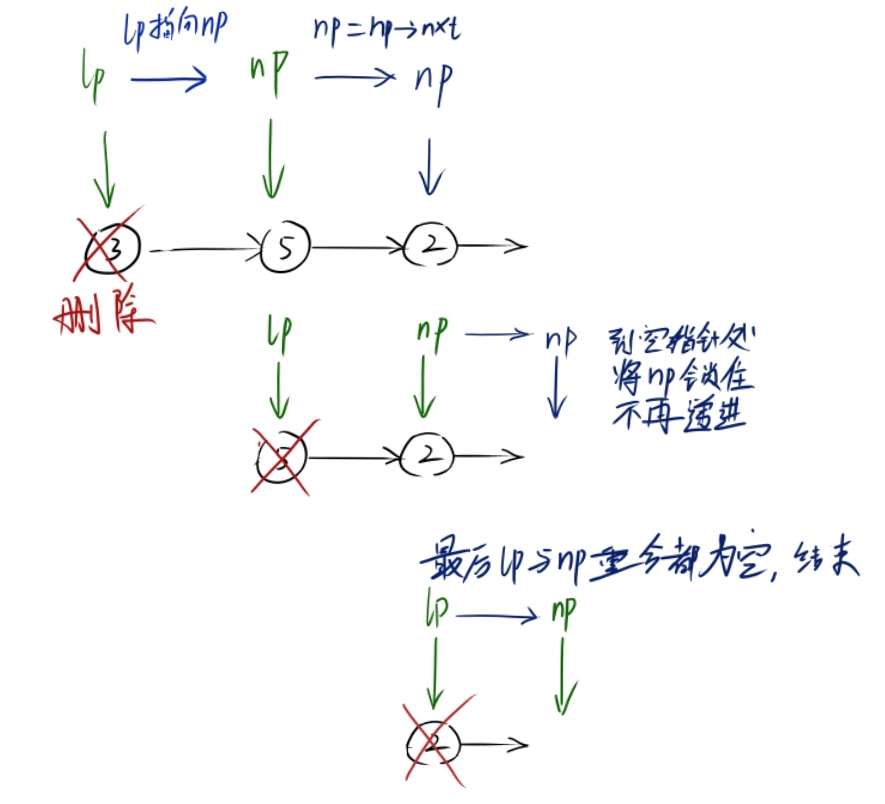 lp指向np
np=np→nxt
lp
np
np
3
5
2
删除
lp
np
np
到空指针处
将np锁住
不再递进
5
2
最后lp与np重合都为空,结束
lp
np
2